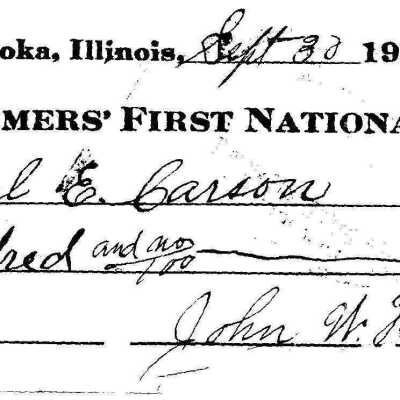 oka, Illinois, Sept 30 19
MERS' FIRST NATIONA
l E. Carson
dred and no/100
John W.